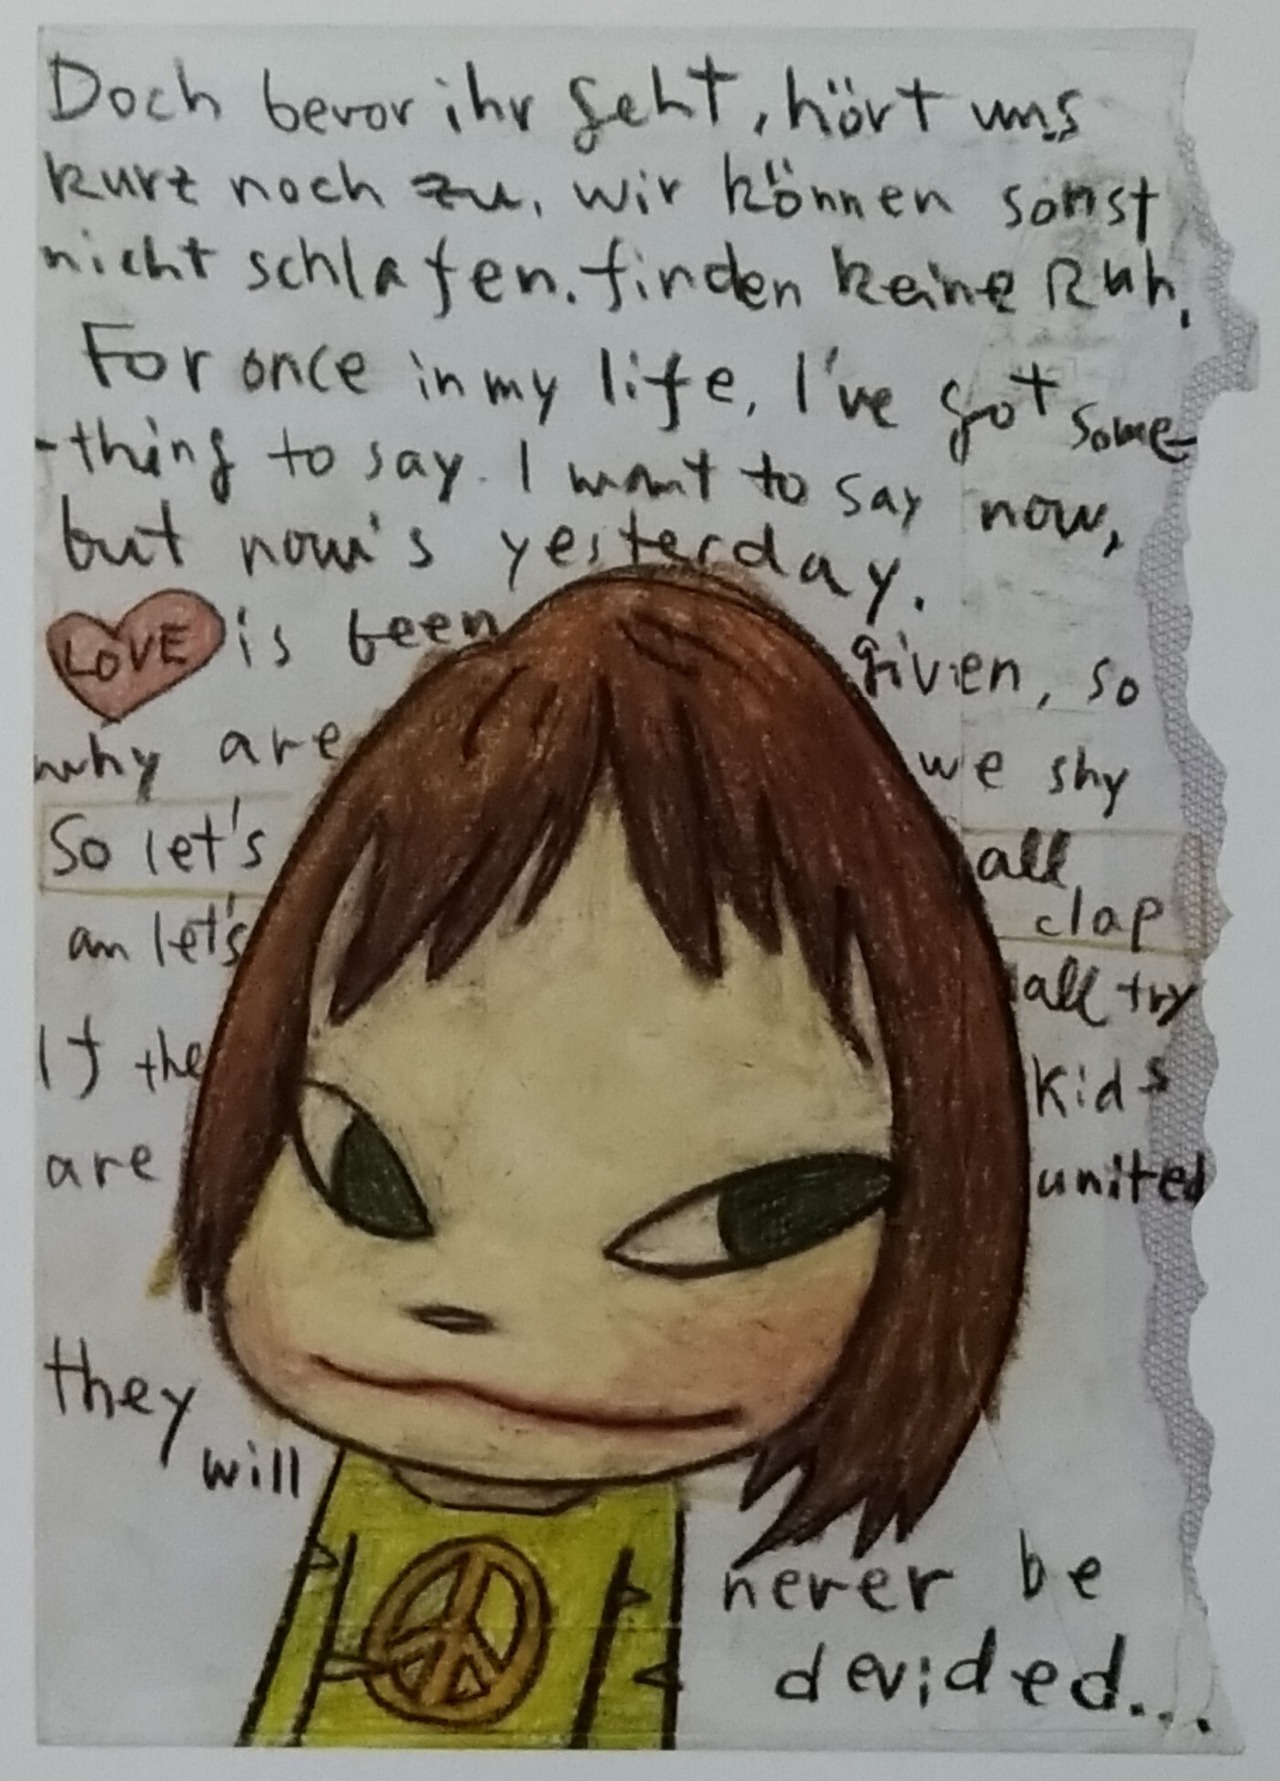 Doch bevor ihr geht, hört uns
kurz noch zu, wir können sonst
nicht schlafen. finden keine Ruh,
For once in my life, I've got some
-thing to say. I want to say now,
but now's yesterday.
LOVE is been given, so
why are we shy
So let's all clap
an let's all try
If the kids
are united
they will
never be
devided...